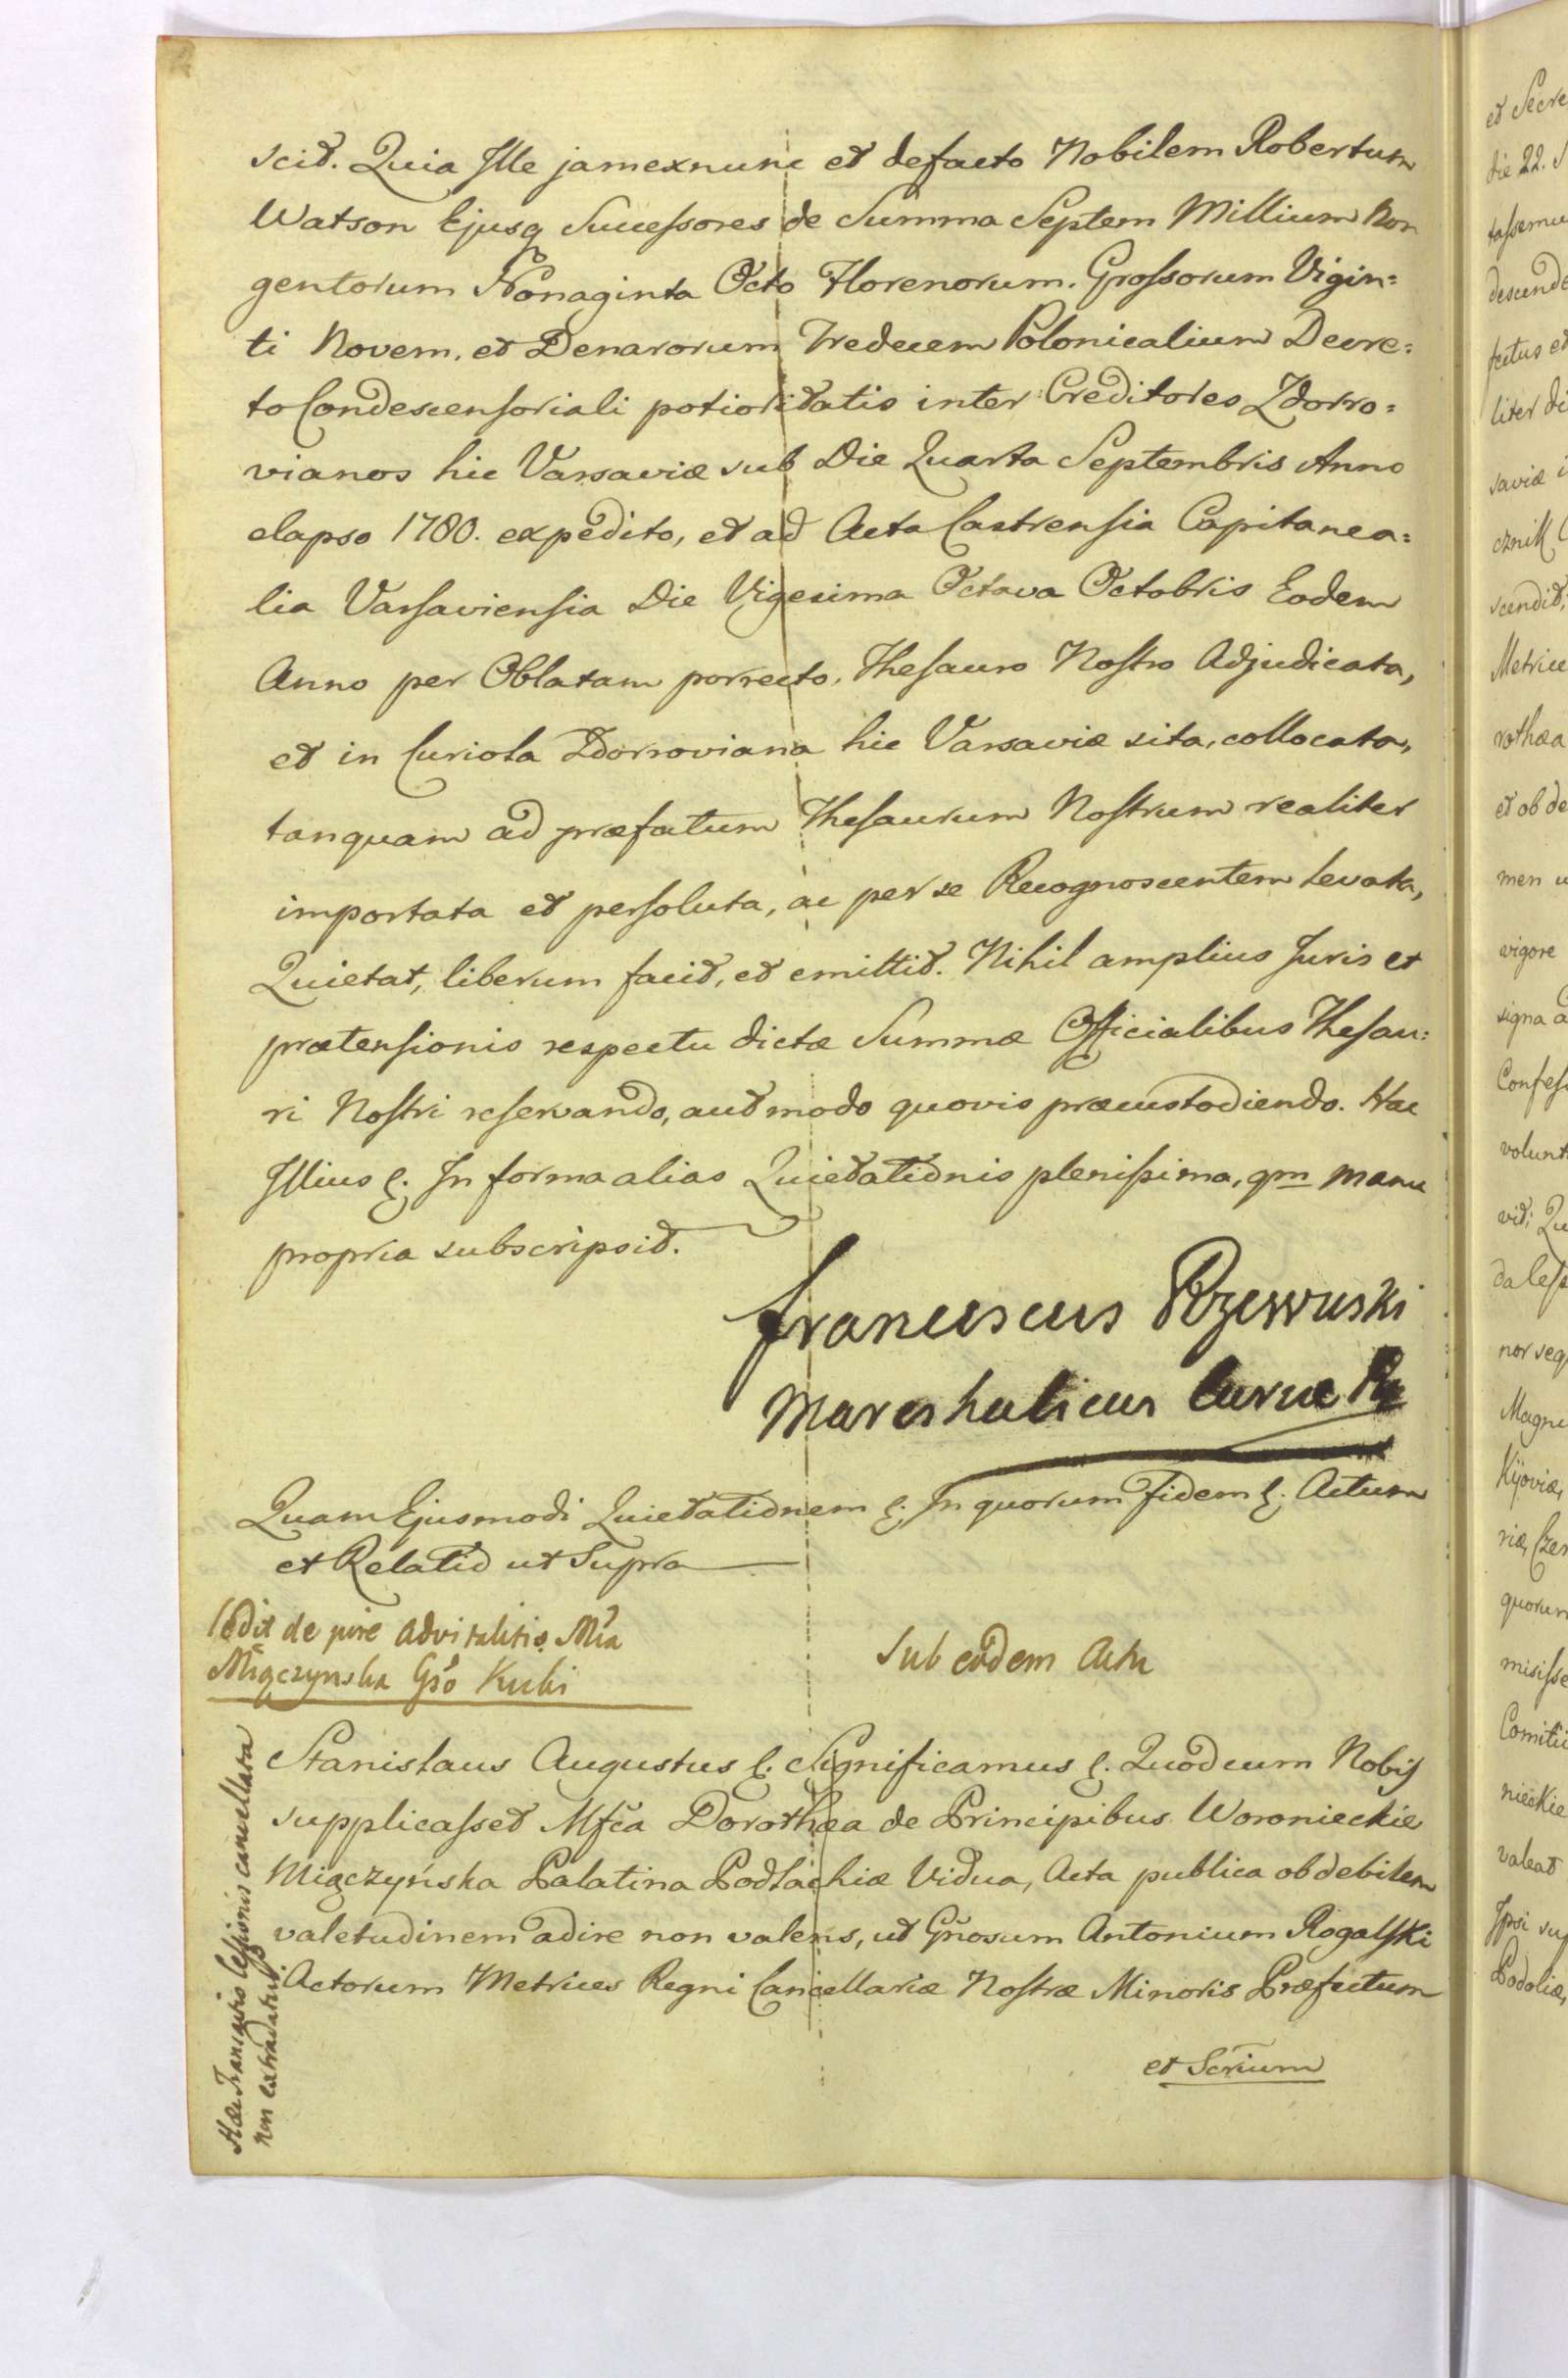 scit. Quia Ille jamexnunc et defacto Nobilem Robertum
Watson Ejusq Successores de Summa Septem Millium Non
gentorum Nonaginta Octo Florenorum. Grossorum Vigin=
ti Novem, et Denarorum Tredecem Polonicalium Decre=
to Condescensoriali potioritatis inter Creditores Zdorro=
vianos hic Varsaviæ sub Die Quarta Septembris Anno
elapso 1780. expedito, et ad Acta Castrensia Capitanea=
lia Varsaviensia Die Vigesima Octava Octobris Eodem
Anno per Oblatam porrecto, Thesauro Nostro Adjudicata,
et in Curiola Zdorroviana hic Varsaviæ sita, collocata,
tanquam ad præfatum Thesaurum Nostrum realiter
importata et persoluta, ac per se Recognoscentem levata,
Quietat, liberum facit, et emittit. Nihil amplius Juris et
prætensionis respectu dictæ Summæ Officialibus Thesau:
ri Nostri reservando, aut modo quovis præcustodiendo. Hac
Illius &. In forma alias Quietationis plenissima, qm manu
propria subscripsit.
Franciscus Rzewuski
Mareshalicus Curiæ Rg
Quam Ejusmodi Quietationem &. In quorum Fidem &. Actum
et Relatio ut Supra
Cedit de jure advitalitio Mća
Miączynska Gso Kicki
Sub eodem Actu
Stanislaus Augustus &. Significamus &. Quod cum Nobis
supplicasset Mfca Dorothea de Principibus Woronieckie
Miączyńska Palatina Podlachiæ Vidua, Acta publica ob debilem
valetudinem adire non valens, ut Gnosum Antonium Rogalski
Actorum Metrices Regni Cancellariæ Nostræ Minoris Præfectum
et Scrium
Hæc Transactio Cessionis cancellata
non extradatur
et Secre
die 22. S
tassemu
descende
fectus et
liter di
saviæ i
cznik C
scendit,
Metrice
rothæa
et ob de
men u
vigore
signa a
Confess
volunt
vit; Qu
da less
nor seq
Magni
Kijoviæ,
riæ, Czer
quorum
misisse
Comitii
nieckie
valeat
Ipsi sup
Podoliæ,